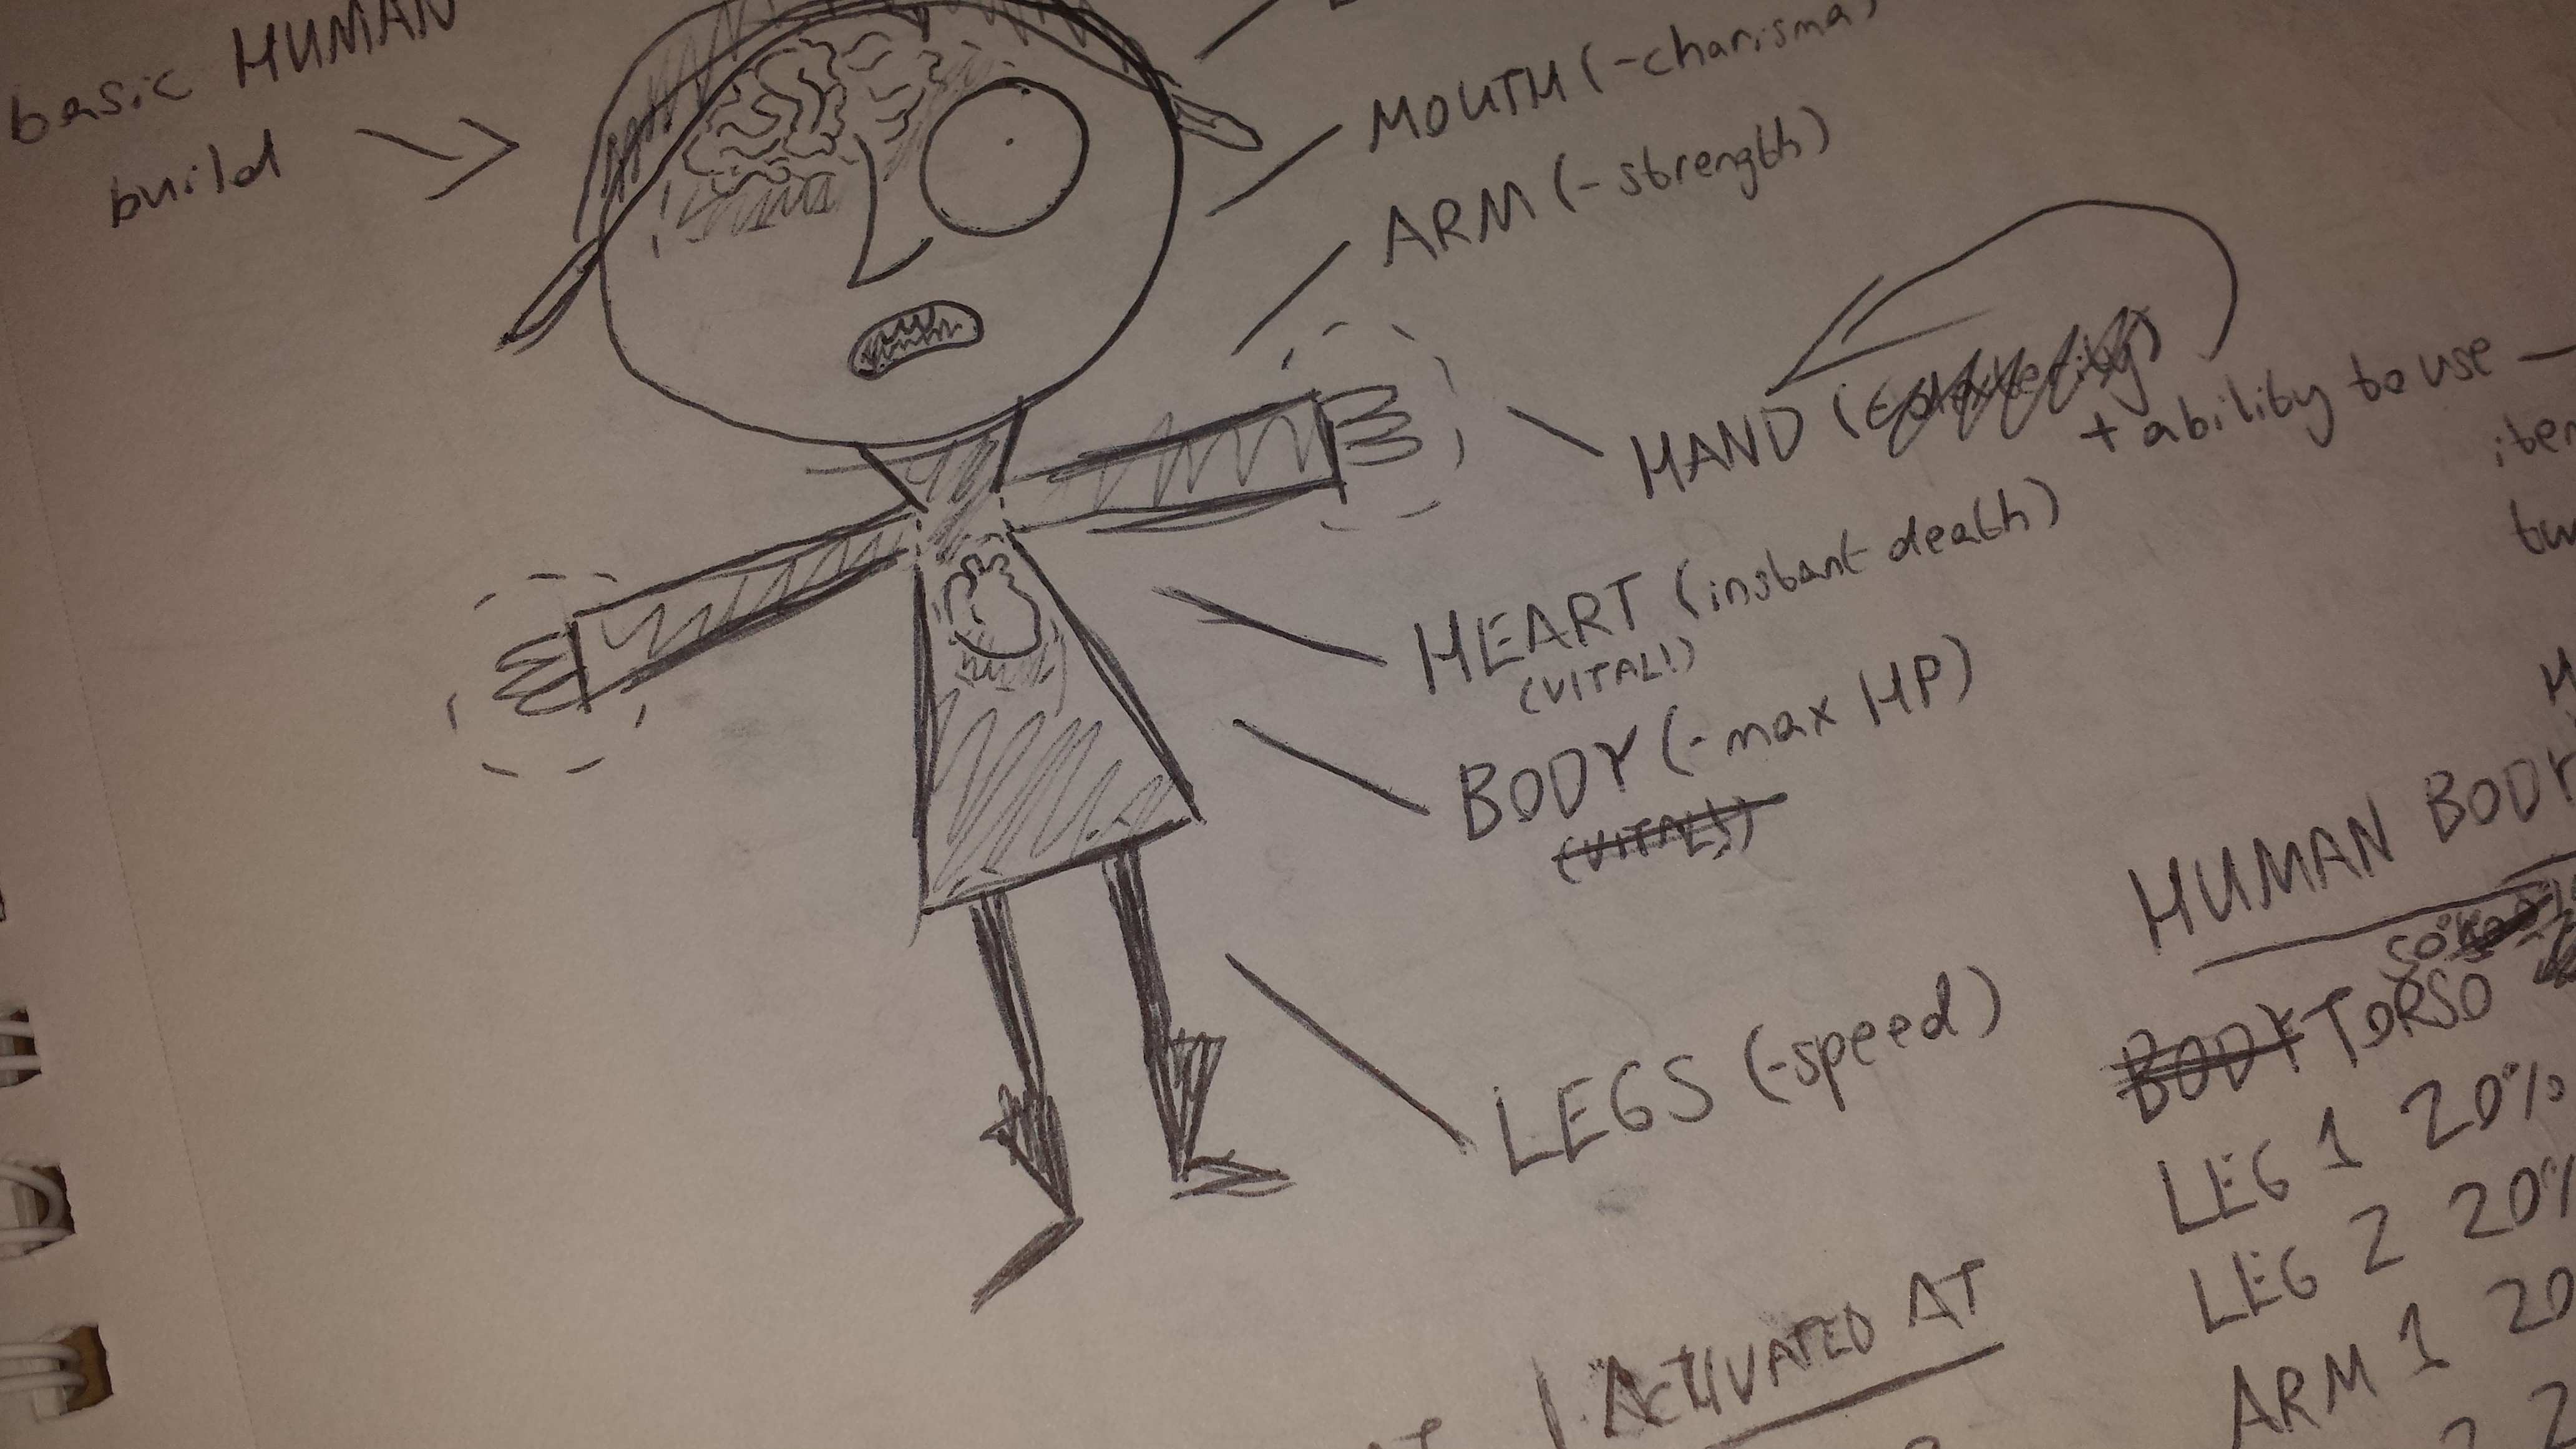 basic HUMAN
build
MOUTH (-charisma)
ARM (-strength)
HAND (
+ ability to use
HEART (instant death)
(VITAL!)
BODY (-max HP)
(VITAL!)
LEGS (-speed)
HUMAN BODY
BODY TORSO
LEG 1 20%
LEG 2 20%
ARM 1 20
ACTIVATED AT